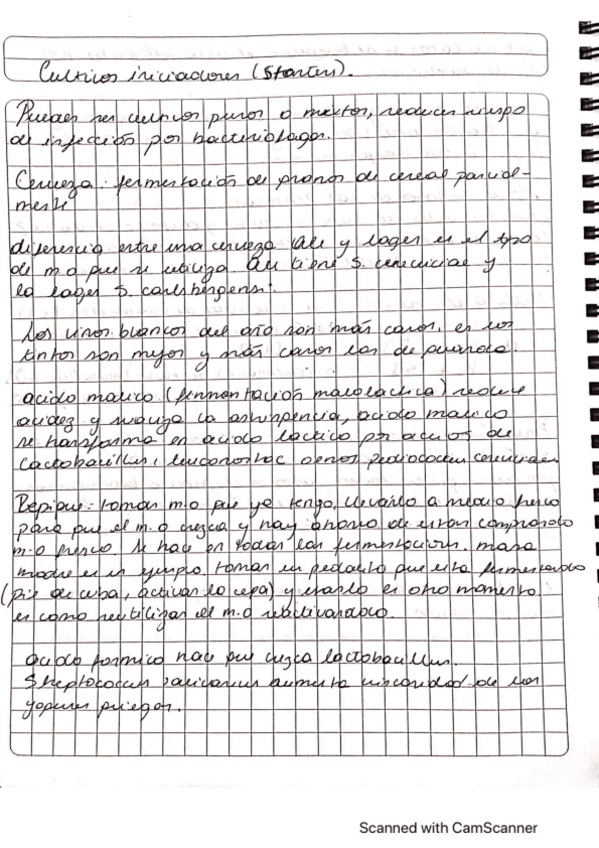 Cultivos iniciadores (Starters).
Pueden ser cultivos puros o mixtos, reducen riesgo
de infección por bacteriófagos.
Cerveza: fermentación de granos de cereal parcial-
mente
diferencia entre una cerveza ale y lager es el tipo
de m.o que se utiliza. Ale tiene S. cereviciae y
la lager S. carlsbergensi.
Los vinos blancos del año son más caros, en los
tintos son mejor y más caros los de guarda.
acido malico (fermentación malolactica) reduce
acidez y suaviza la astringencia, acido malico
se transforma en acido lactico por accion de
Lactobacillus, leuconostoc oenos pediococcus cereviciae
Repique: tomar m.o que ya tengo, llevarlo a medio fresco
para que el m.o crezca y hay ahorro de estar comprando
m.o fresco. Se hace en todas las fermentacion. masa
madre es un ejemplo tomar un pedacito que esta fermentando
(pie de cuba, activar la cepa) y usarlo en otro momento
es como reutilizar el m.o reactivandolo.
acido formico hace que crezca lactobacillus.
Streptococcus salivarius aumenta viscosidad de los
yogures griegos.
Scanned with CamScanner